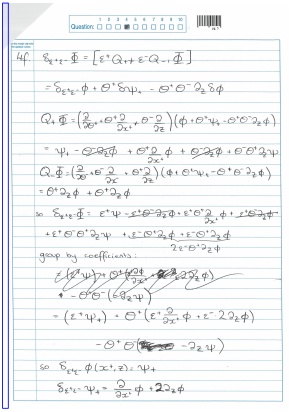 Question: 1 2 3 4 5 6 7 8 9 10
4f. δ_{ε+ε-} Φ = [ε⁺Q₊ + ε⁻Q₋, Φ]
= δ_{ε+ε-} φ + θ⁺δψ₊ - θ⁺θ⁻∂_z δφ
Q₊Φ = (∂/∂θ⁺ + θ⁺ ∂/∂x⁺ + θ⁻ ∂/∂z)(φ + θ⁺ψ₊ - θ⁺θ⁻∂_zφ)
= ψ₊ - θ⁻∂_zφ + θ⁺ ∂/∂x⁺ φ + θ⁻∂_zφ + θ⁻θ⁺∂_zψ
Q₋Φ = (∂/∂θ⁻ + θ⁻ ∂/∂x⁻ + θ⁺ ∂/∂z)(φ + θ⁺ψ₊ - θ⁺θ⁻∂_zφ)
= θ⁺∂_zφ + θ⁺∂_zφ
so δ_{ε+ε-} Φ = ε⁺ψ - ε⁺θ⁻∂_zφ + ε⁺θ⁺ ∂/∂x⁺ φ + ε⁺θ⁻∂_zφ
+ ε⁺θ⁻θ⁺∂_zψ + ε⁻θ⁺∂_zφ + ε⁻θ⁺∂_zφ
2ε⁻θ⁺∂_zφ
group by coefficients:
= (ε⁺ψ₊) + θ⁺(ε⁺ ∂/∂x⁺ φ + ε⁻ 2∂_zφ)
- θ⁺θ⁻( -∂_zψ)
so δ_{ε+ε-} φ(x⁺,z) = ψ₊
δ_{ε+ε-} ψ₊ = ∂/∂x⁺ φ + 2∂_zφ